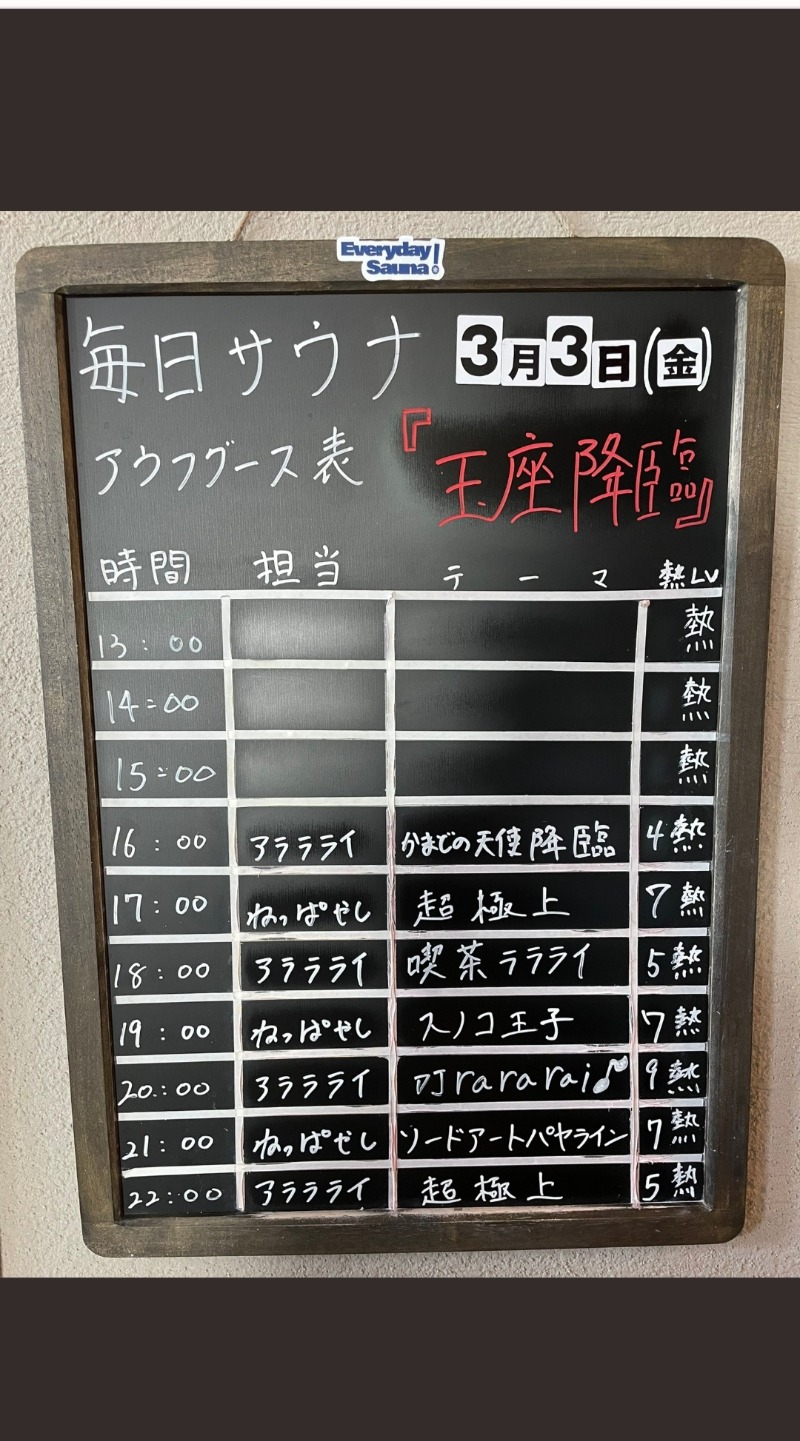 Everyday
Sauna!
毎日サウナ 3月3日(金)
アウフグース表 『玉座降臨』
時間 担当 テーマ 熱LV
13:00 熱
14:00 熱
15:00 熱
16:00 アラララライ かまどの天使降臨 4熱
17:00 ねっぱやし 超極上 7熱
18:00 アララライ 喫茶ラララライ 5熱
19:00 ねっぱやし スノコ王子 7熱
20:00 アララライ DJrararai♪ 9熱
21:00 ねっぱやし ソードアートパヤライン 7熱
22:00 アララライ 超極上 5熱